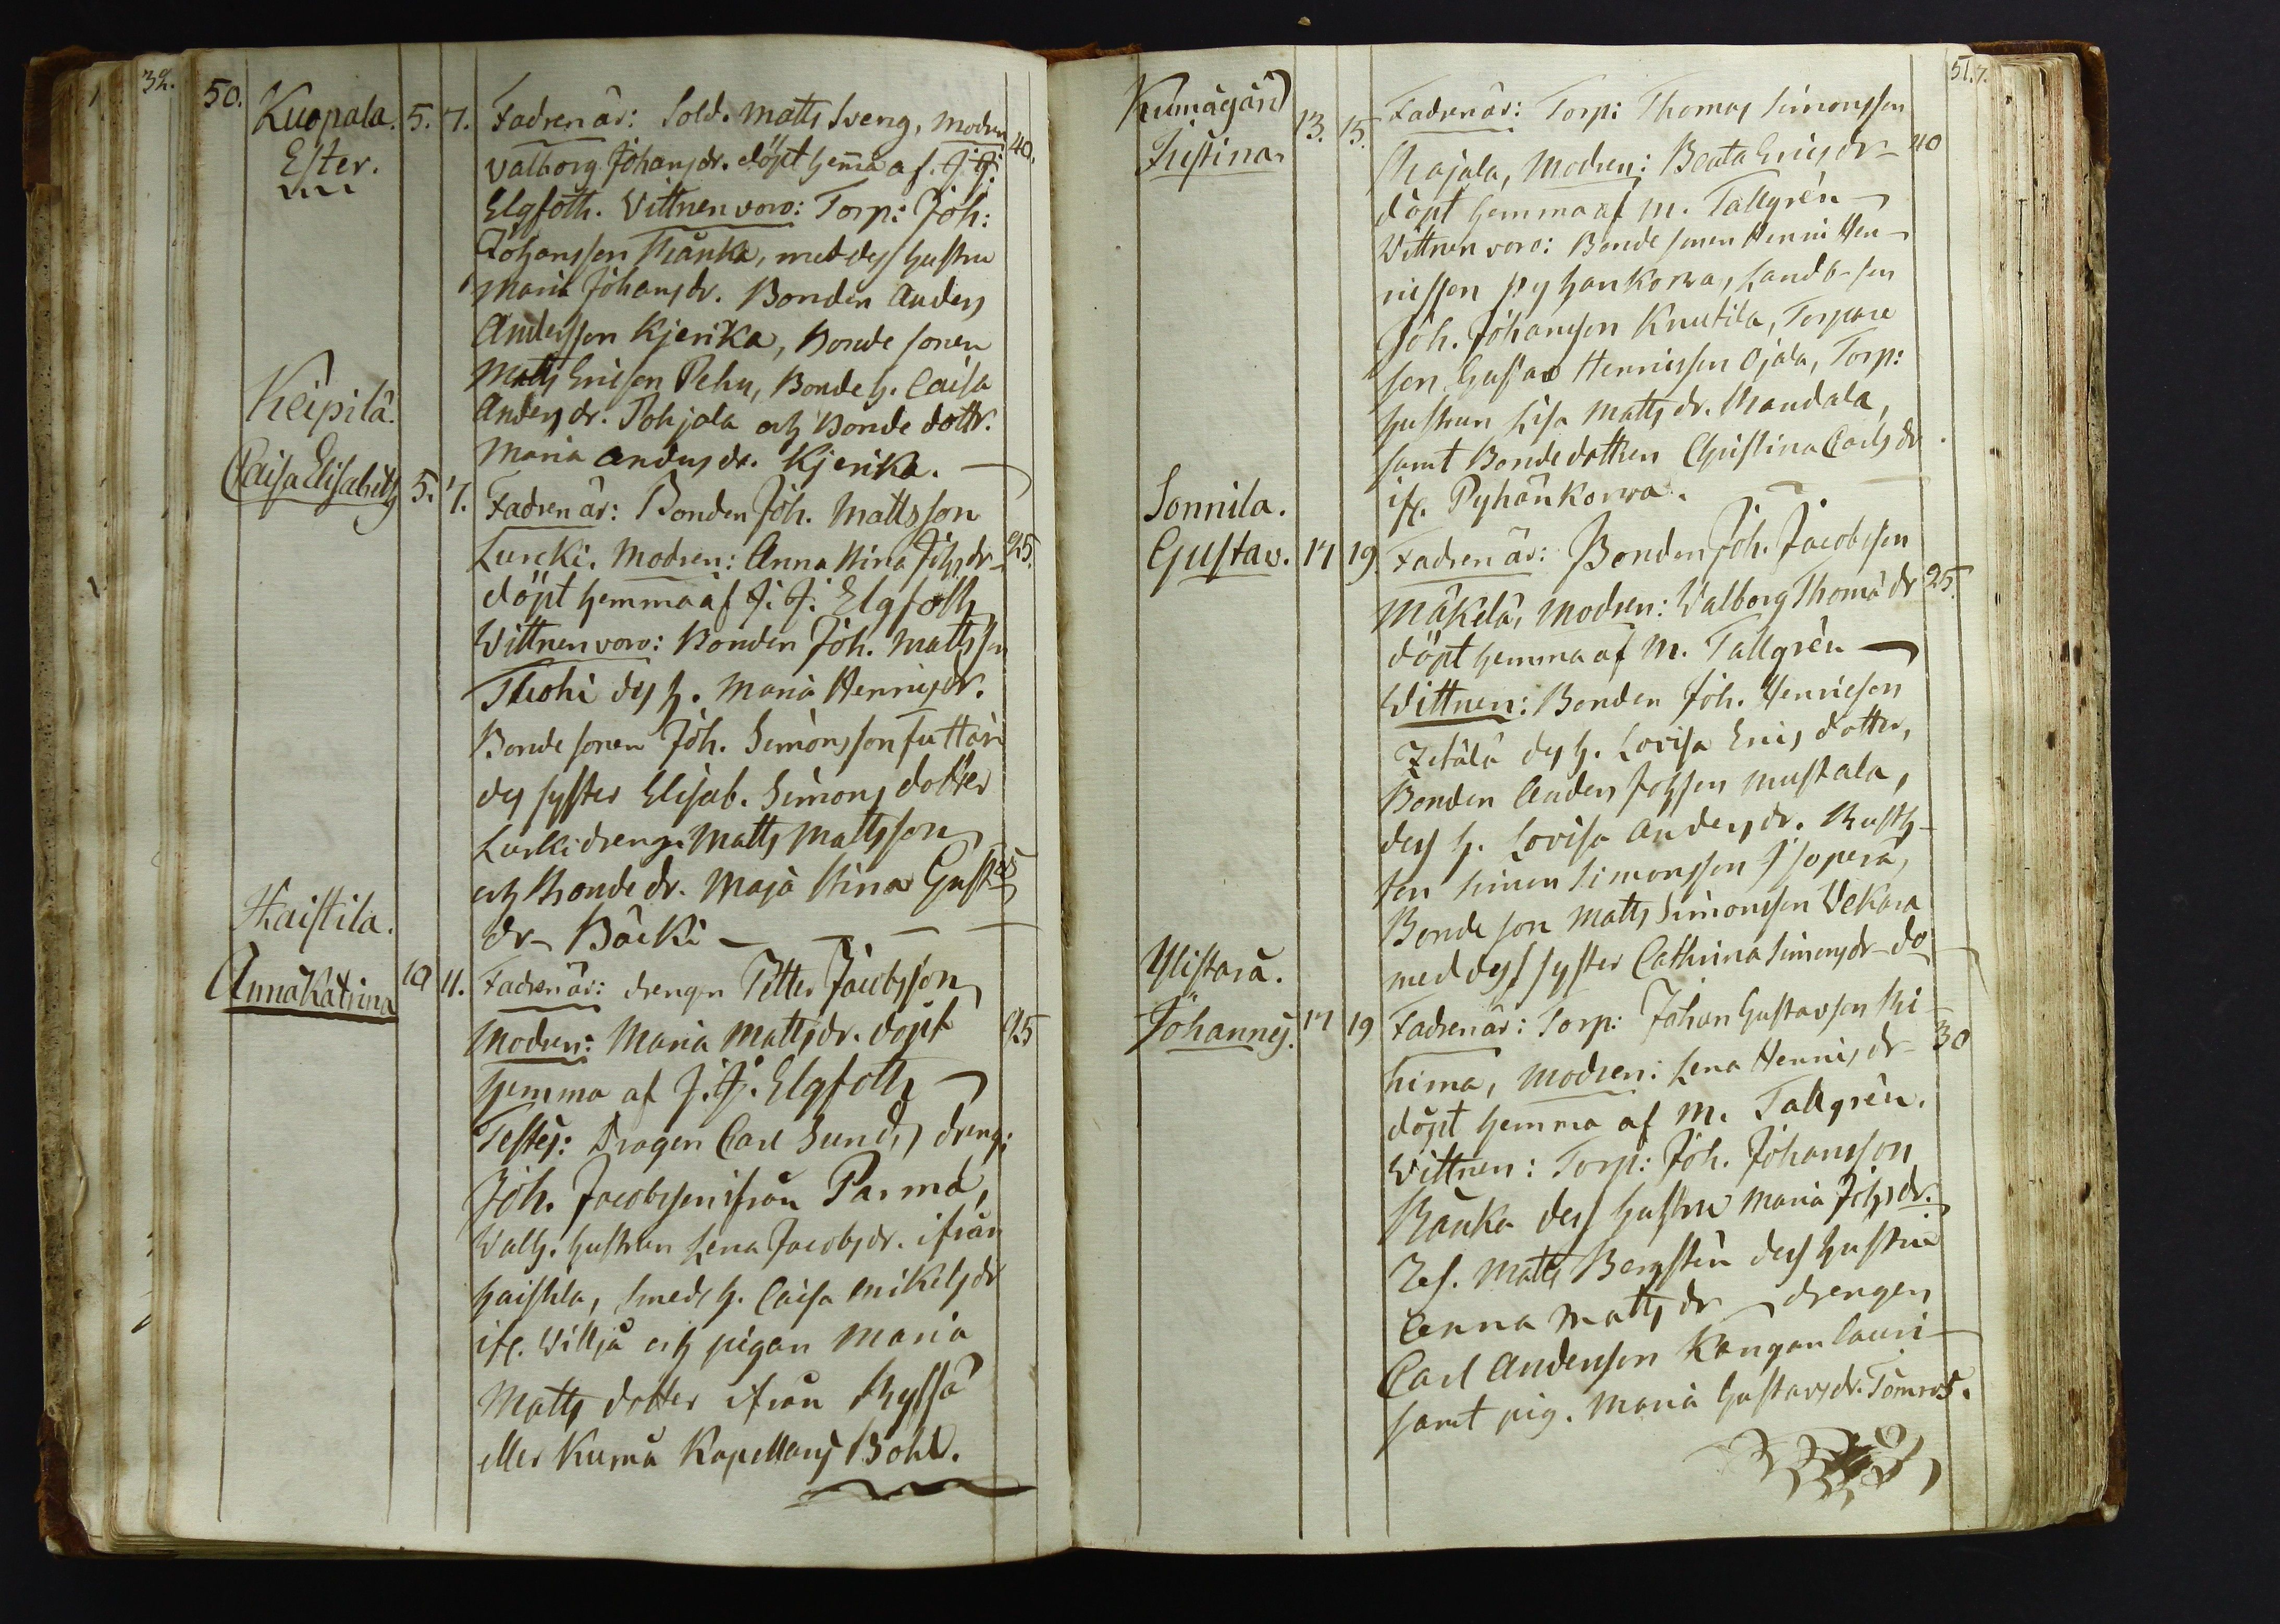 32.
50.
Kuopala.
Ester.
5. 7.
Fadren är: Sold. Matts Sveng, modren
40.
Valborg Johansdr. döpt hema af J. J:
Elgfoth. Vittnen voro: Torp: Joh:
Johansson Ränka, med dess hustru
Maria Johansdr. Bonden Anders
Andersson Kjerika, Bonde sonen
Matts Ericsson Pehu, Bonde h. Caisa
Andersdr. Pohjala och Bonde dottr.
Maria Andersdr. Kjerika.
Keipilä.
Caisa Elisabeth
5. 7.
Fadren är: Bonden Joh. Mattsson
Lurcki. Modren: Anna Stina Johsdr
25.
döpt hemma af J. J. Elgfoth
Vittnen voro: Bonden Joh. Mattsson
Tuohi des h. Maria Henricsdr.
Bonde sonen Joh. Simonsson
des syster Elisab. Simonsdotter
Lurki dreng. Matts Mattsson
och Bonde dr. Maja Stina Gustavs
dr Bäcki
Kaistila.
Anna Katrina
10 11.
Fadren är: drengen Petter Jacobsson
Modren: Maria Mattsdr. döpt
25
hemma af J. J. Elgfoth
Testes: Dragon Carl Sund, dreng:
Joh. Jacobsson ifrån Parma,
Vallh. hustrun Lena Jacobsdr. ifrån
haistila, smeds h. Caisa Mikelsdr
ifr. Villja och pigan Maria
Matts dotter ifrån
eller Kumå Kapellans Bohl.
51.
7.
Kumågård
Justina
13. 15.
Fadren är: Torp: Thomas Simonsson
Majala, Modren: Beata Ericsdr
40
döpt hemma af M. Tallgrén
Vittnen voro: Bonde sonen Henric Hen-
ricsson Pyhänkorva, Landb. son
Joh. Johansson Knutila, Torpare
son Gustav Henricsson Ojala, Torp:
hustrun Lisa Mattsdr. Mandala,
samt Bondedottren Christina Carlsdr
ifr. Pyhänkorva.
Sonnila.
Gustav.
17 19.
Fadren är: Bonden Joh. Jacobsson
Mäkelä, Modren: Valborg Thomädr
25.
döpt hemma af M. Tallgrén
Vittnen: Bonden Joh. Henricson
des h. Lovisa Erics dotter,
Bonden Anders Johsson Mustala,
dess h. Lovisa Andersdr. Rusth-
Simon Simonsson Isopera,
Bonde son Matts Simonsson Vekara
med dess syster Cathrina Simonsdr do
Ylistarä.
Johannes.
17 19
Fadren är: Torp: Johan Gustavsson Ri-
hima, Modren: Lena Henricsdr
30
döpt hemma af M. Tallgrén.
Vittnen: Torp: Joh. Johansson
Ränka dess hustru Maria Johsdr.
Matts Bergsten dess hustru
Anna Mattsdr drengen
Carl Andersson Kangan lauri
samt pig. Maria Gustavsdr.